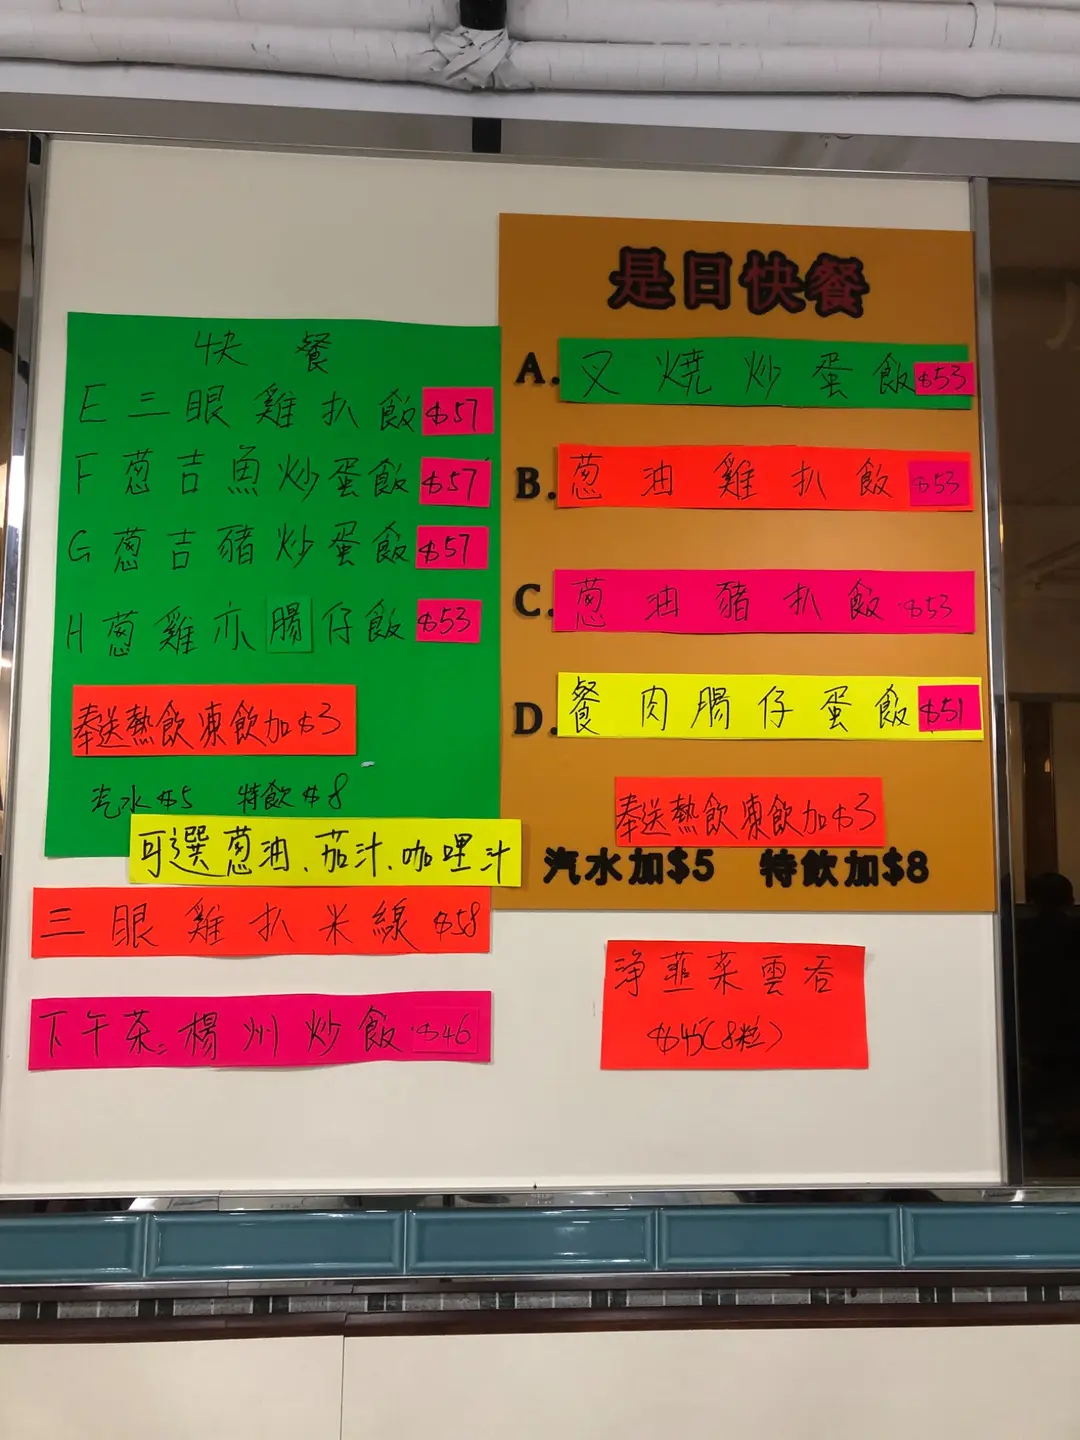 快餐
E 三眼雞扒飯 $57
F 蔥吉魚炒蛋飯 $57
G 蔥吉豬炒蛋飯 $57
H 蔥雞亦腸仔飯 $53
奉送熱飲凍飲加$3
汽水$5 特飲$8
可選蔥油、茄汁、咖哩汁
三眼雞扒米線 $58
下午茶:楊州炒飯 $46
是日快餐
A. 叉燒炒蛋飯 $53
B. 蔥油雞扒飯 $53
C. 蔥油豬扒飯 $53
D. 餐肉腸仔蛋飯 $51
奉送熱飲凍飲加$3
汽水加$5 特飲加$8
淨韮菜雲吞
$45(8粒)